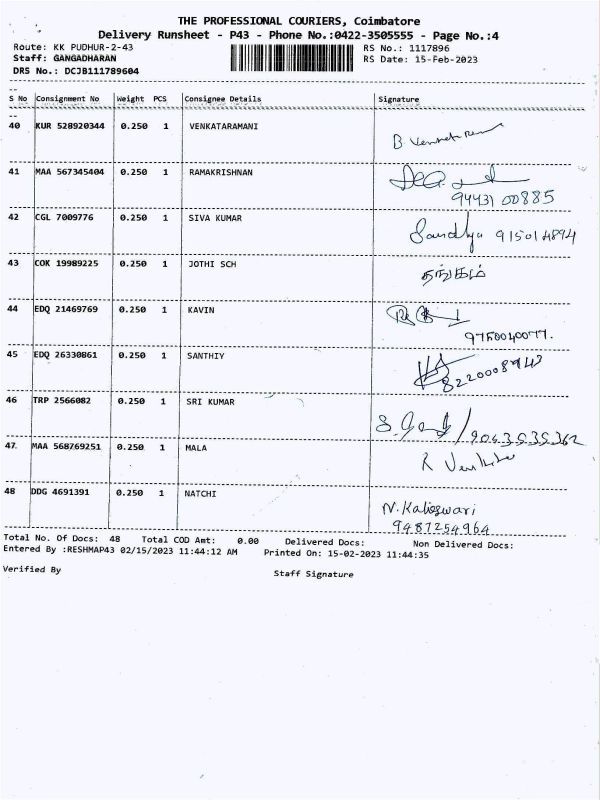 THE PROFESSIONAL COURIERS, Coimbatore
Delivery Runsheet - P43 - Phone No.:0422-3505555 - Page No.:4
Route: KK PUDHUR-2-43 RS No.: 1117896
Staff: GANGADHARAN RS Date: 15-Feb-2023
DRS No.: DCJB111789604
S No Consignment No Weight PCS Consignee Details Signature
40 KUR 528920344 0.250 1 VENKATARAMANI B
41 MAA 567345404 0.250 1 RAMAKRISHNAN
94431 00885
42 CGL 7009776 0.250 1 SIVA KUMAR Sandhya 915014894
43 COK 19989225 0.250 1 JOTHI SCH தங்கம்
44 EDQ 21469769 0.250 1 KAVIN
9750040077.
45 EDQ 26330861 0.250 1 SANTHIY 8220008943
46 TRP 2566082 0.250 1 SRI KUMAR
S. / 9043535362
47 MAA 568769251 0.250 1 MALA R
48 DDG 4691391 0.250 1 NATCHI N. Kaleeswari
9487254964
Total No. Of Docs: 48 Total COD Amt: 0.00 Delivered Docs: Non Delivered Docs:
Entered By :RESHMAP43 02/15/2023 11:44:12 AM Printed On: 15-02-2023 11:44:35
Verified By Staff Signature